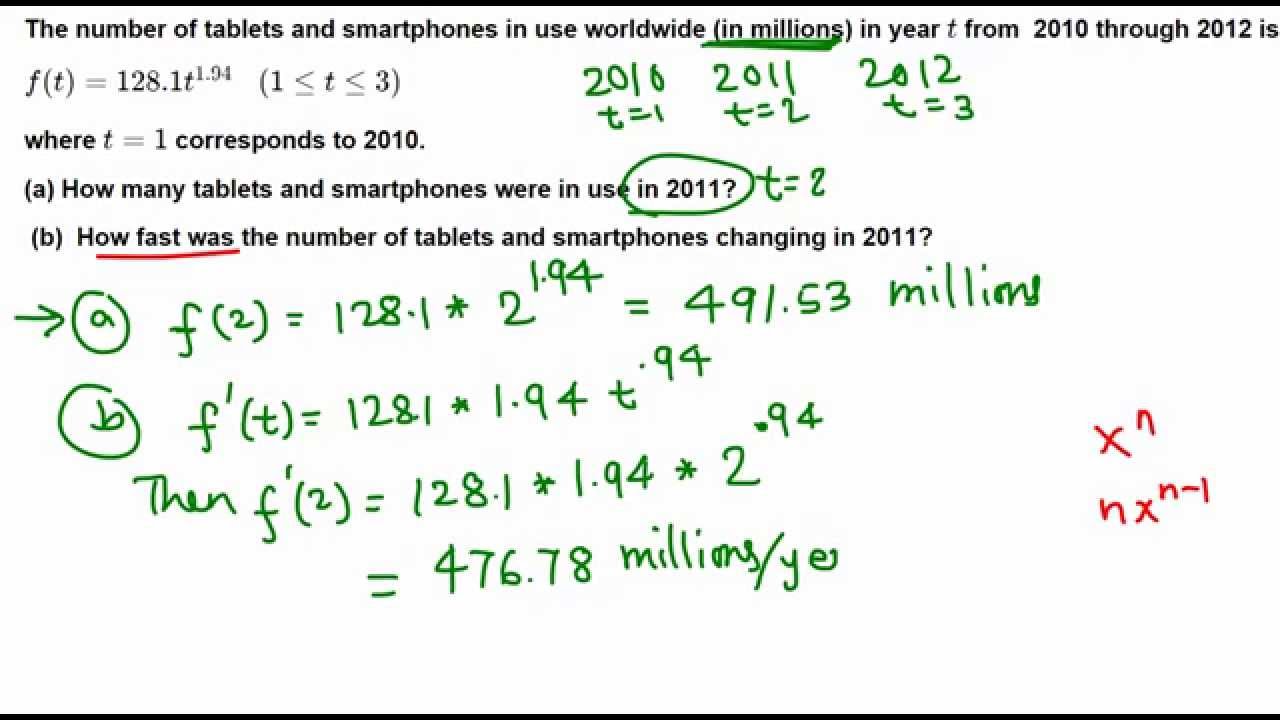 The number of tablets and smartphones in use worldwide (in millions) in year t from 2010 through 2012 is
f(t) = 128.1t^1.94 (1 ≤ t ≤ 3)
2010 2011 2012
t=1 t=2 t=3
where t = 1 corresponds to 2010.
(a) How many tablets and smartphones were in use in 2011? t=2
(b) How fast was the number of tablets and smartphones changing in 2011?
→ (a) f(2) = 128.1 * 2^1.94 = 491.53 millions
(b) f'(t) = 128.1 * 1.94 t^.94
Then f'(2) = 128.1 * 1.94 * 2^.94
= 476.78 millions/ye
x^n
nx^n-1